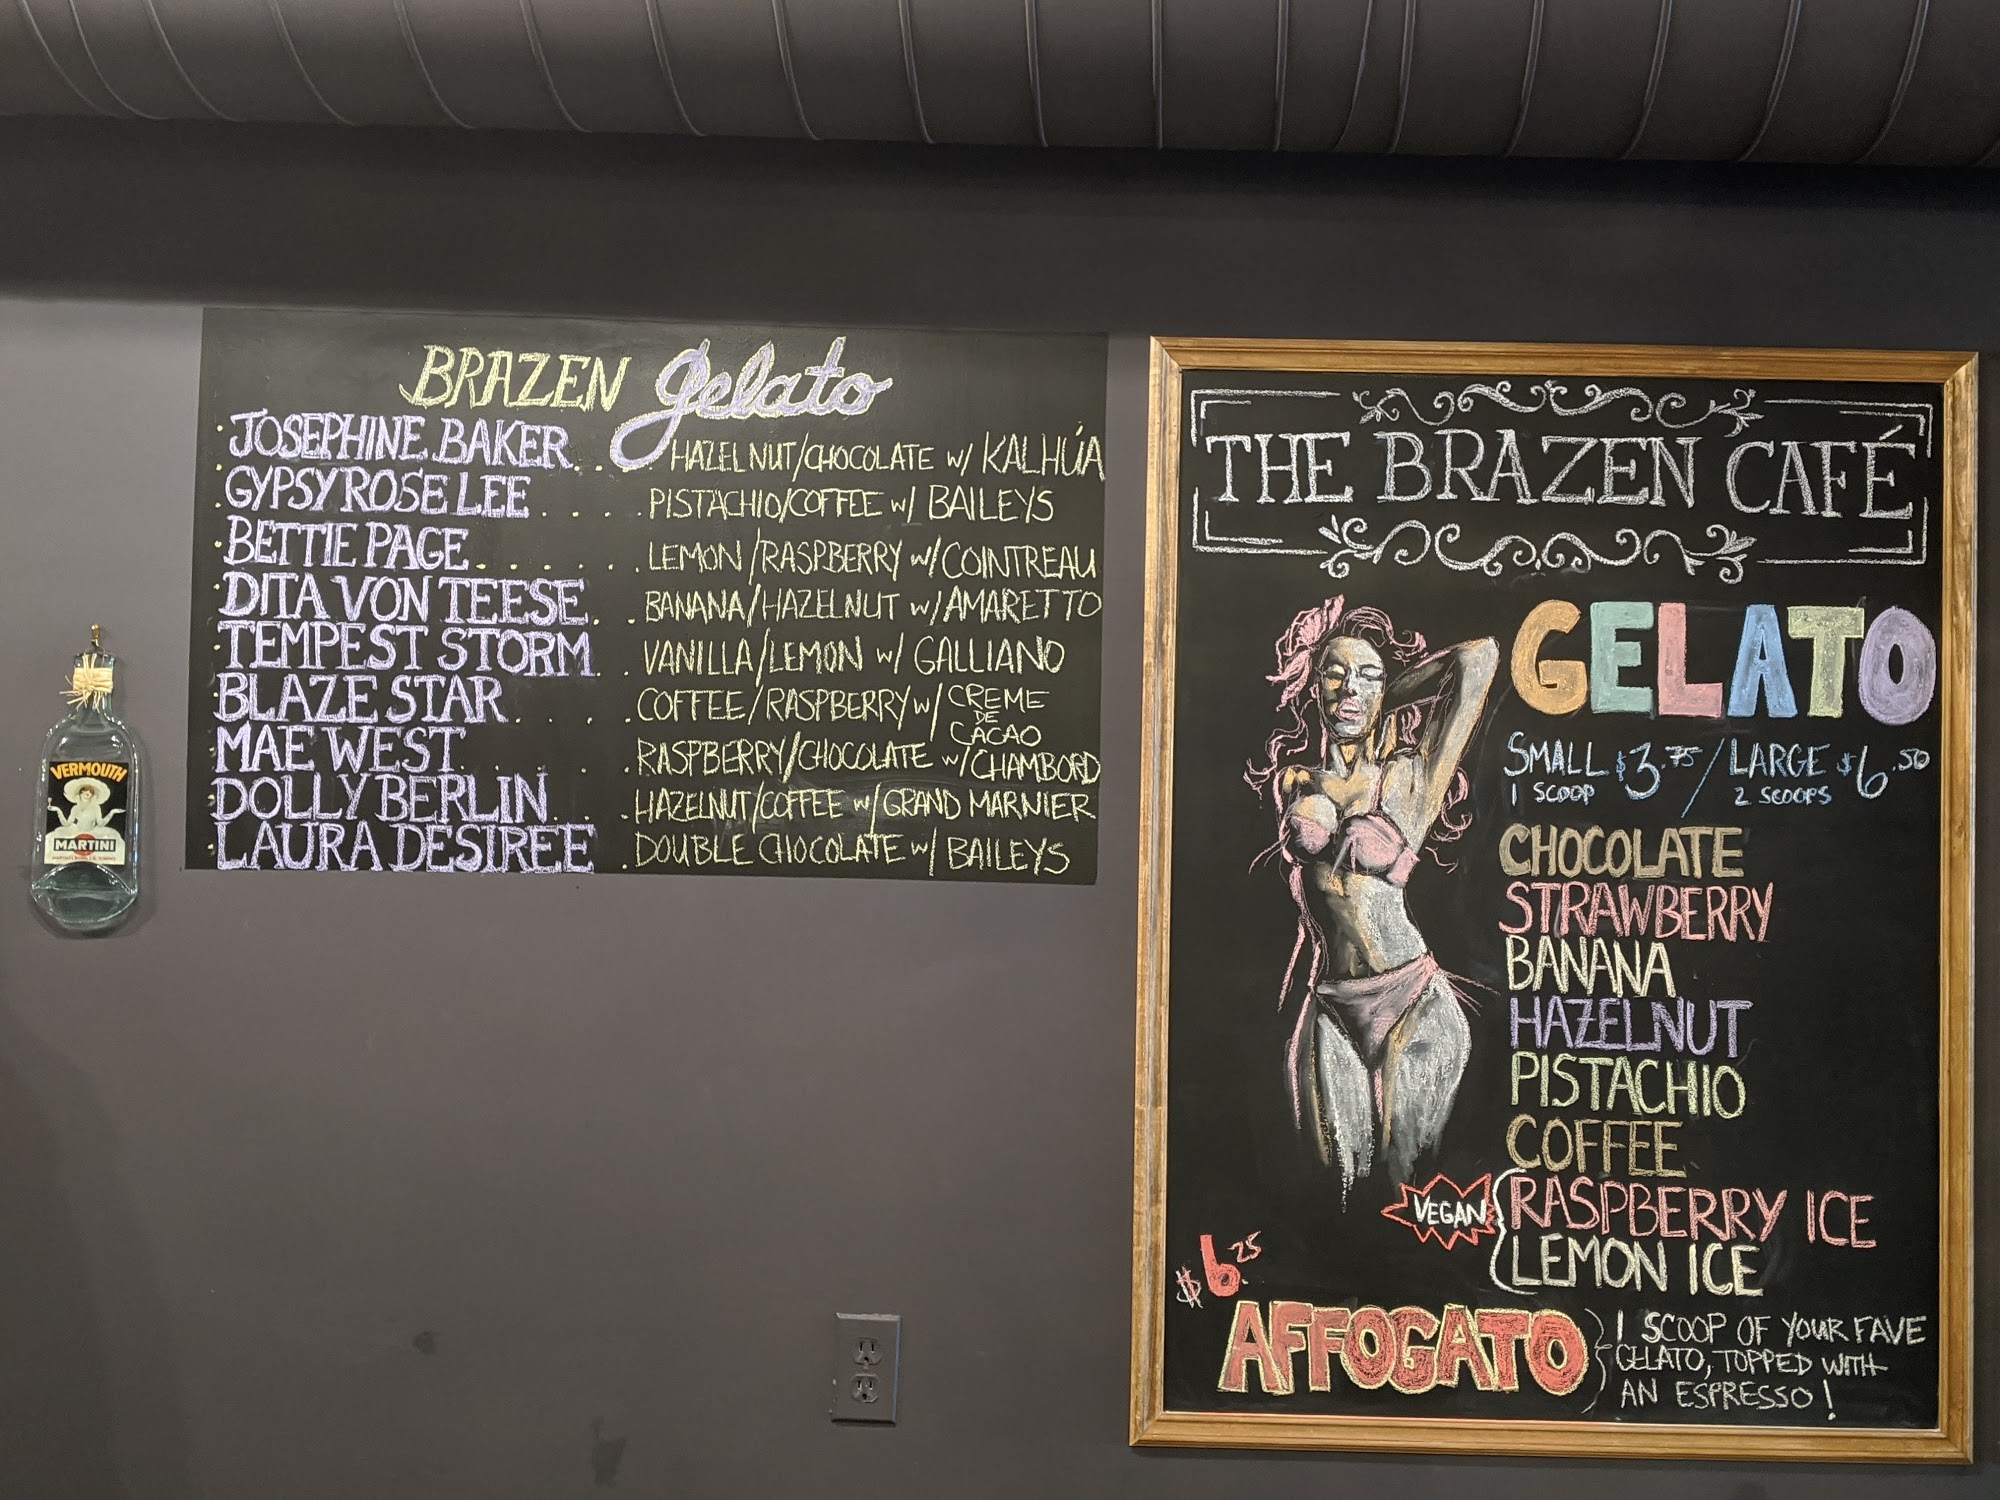 BRAZEN gelato
· JOSEPHINE BAKER . . . HAZELNUT/CHOCOLATE w/ KALHÚA
· GYPSY ROSE LEE . . . . PISTACHIO/COFFEE w/ BAILEYS
· BETTIE PAGE . . . . . . . LEMON/RASPBERRY w/ COINTREAU
· DITA VON TEESE . . . BANANA/HAZELNUT w/ AMARETTO
· TEMPEST STORM . . VANILLA/LEMON w/ GALLIANO
· BLAZE STAR . . . . . COFFEE/RASPBERRY w/ CREME DE CACAO
· MAE WEST . . . . . . RASPBERRY/CHOCOLATE w/ CHAMBORD
· DOLLY BERLIN . . . HAZELNUT/COFFEE w/ GRAND MARNIER
· LAURA DESIREE . DOUBLE CHOCOLATE w/ BAILEYS
VERMOUTH
MARTINI
THE BRAZEN CAFÉ
GELATO
SMALL $3.75 / LARGE $6.50
1 SCOOP 2 SCOOPS
CHOCOLATE
STRAWBERRY
BANANA
HAZELNUT
PISTACHIO
COFFEE
VEGAN
RASPBERRY ICE
LEMON ICE
$6.25
AFFOGATO
1 SCOOP OF YOUR FAVE
GELATO, TOPPED WITH
AN ESPRESSO!